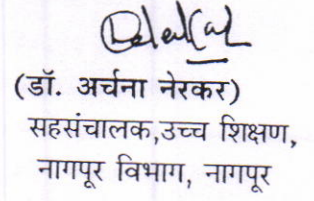 (डॉ. अर्चना नेरकर)
सहसंचालक,उच्च शिक्षण,
नागपूर विभाग, नागपूर